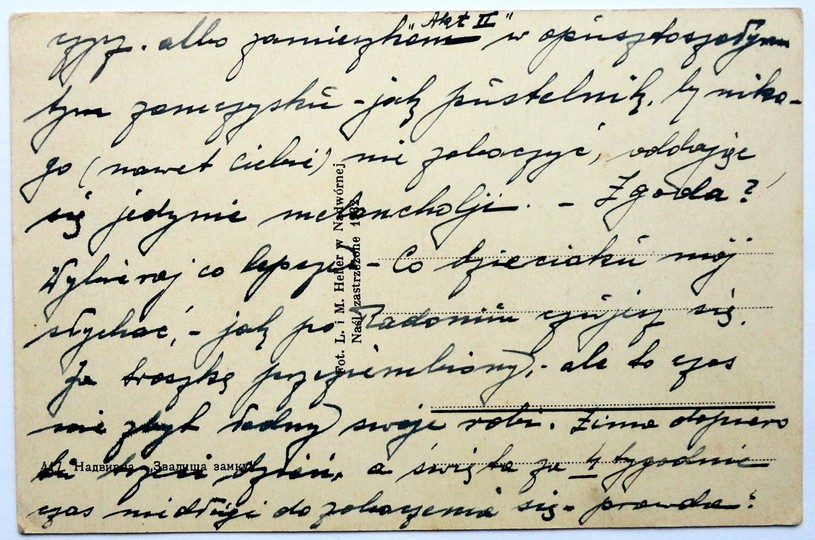 "Akt II"
albo zamieszkam w opustoszałym
tym zamczysku – jak pustelnik, by niko-
go (nawet Ciebie) nie zobaczyć, oddając
się jedynie melancholji. – Zgoda?
Wybieraj co lepsze – Co dzieciaku mój
słychać, – jak po Radomiu czujesz się.
Ja troszkę przeziembiony, – ale to czas
nie zbyt ładny swoje robi. Zima dopiero
trzeci dzień, a święta za 4 tygodnie
czas niedługi do zobaczenia się – prawda?
Fot. L. i M. Heller w Nadwórnej
Naśl. zastrzeżone 1932
Надвірна „Звалища замку"